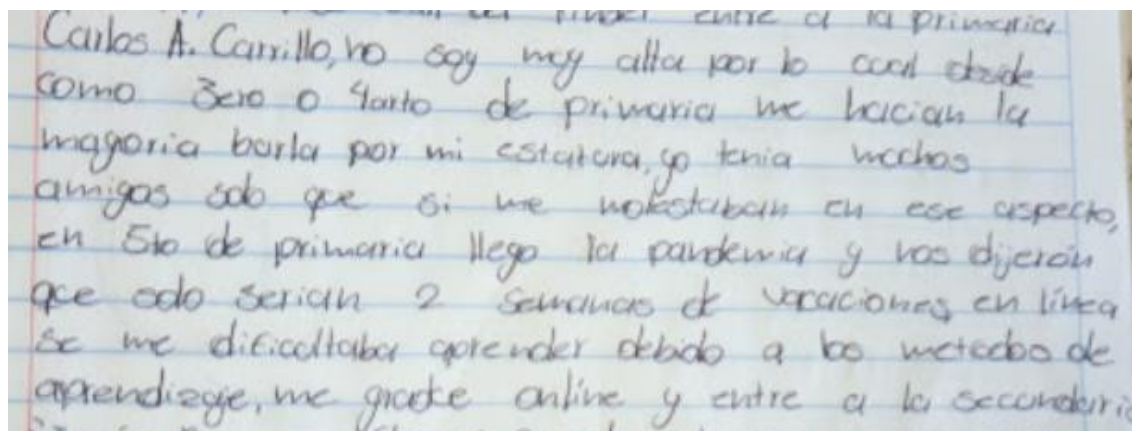 kinder entre a la primaria
Carlos A. Carrillo, no soy muy alta por lo cual desde
como 3ero o 4arto de primaria me hacian la
mayoria burla por mi estatura, yo tenia muchos
amigos solo que si me molestaban en ese aspecto,
en 5to de primaria llego la pandemia y nos dijerón
que solo serian 2 semanas de vacaciones, en línea
se me dificultaba aprender debido a los metodos de
aprendizaje, me gradue online y entre a la secundaria